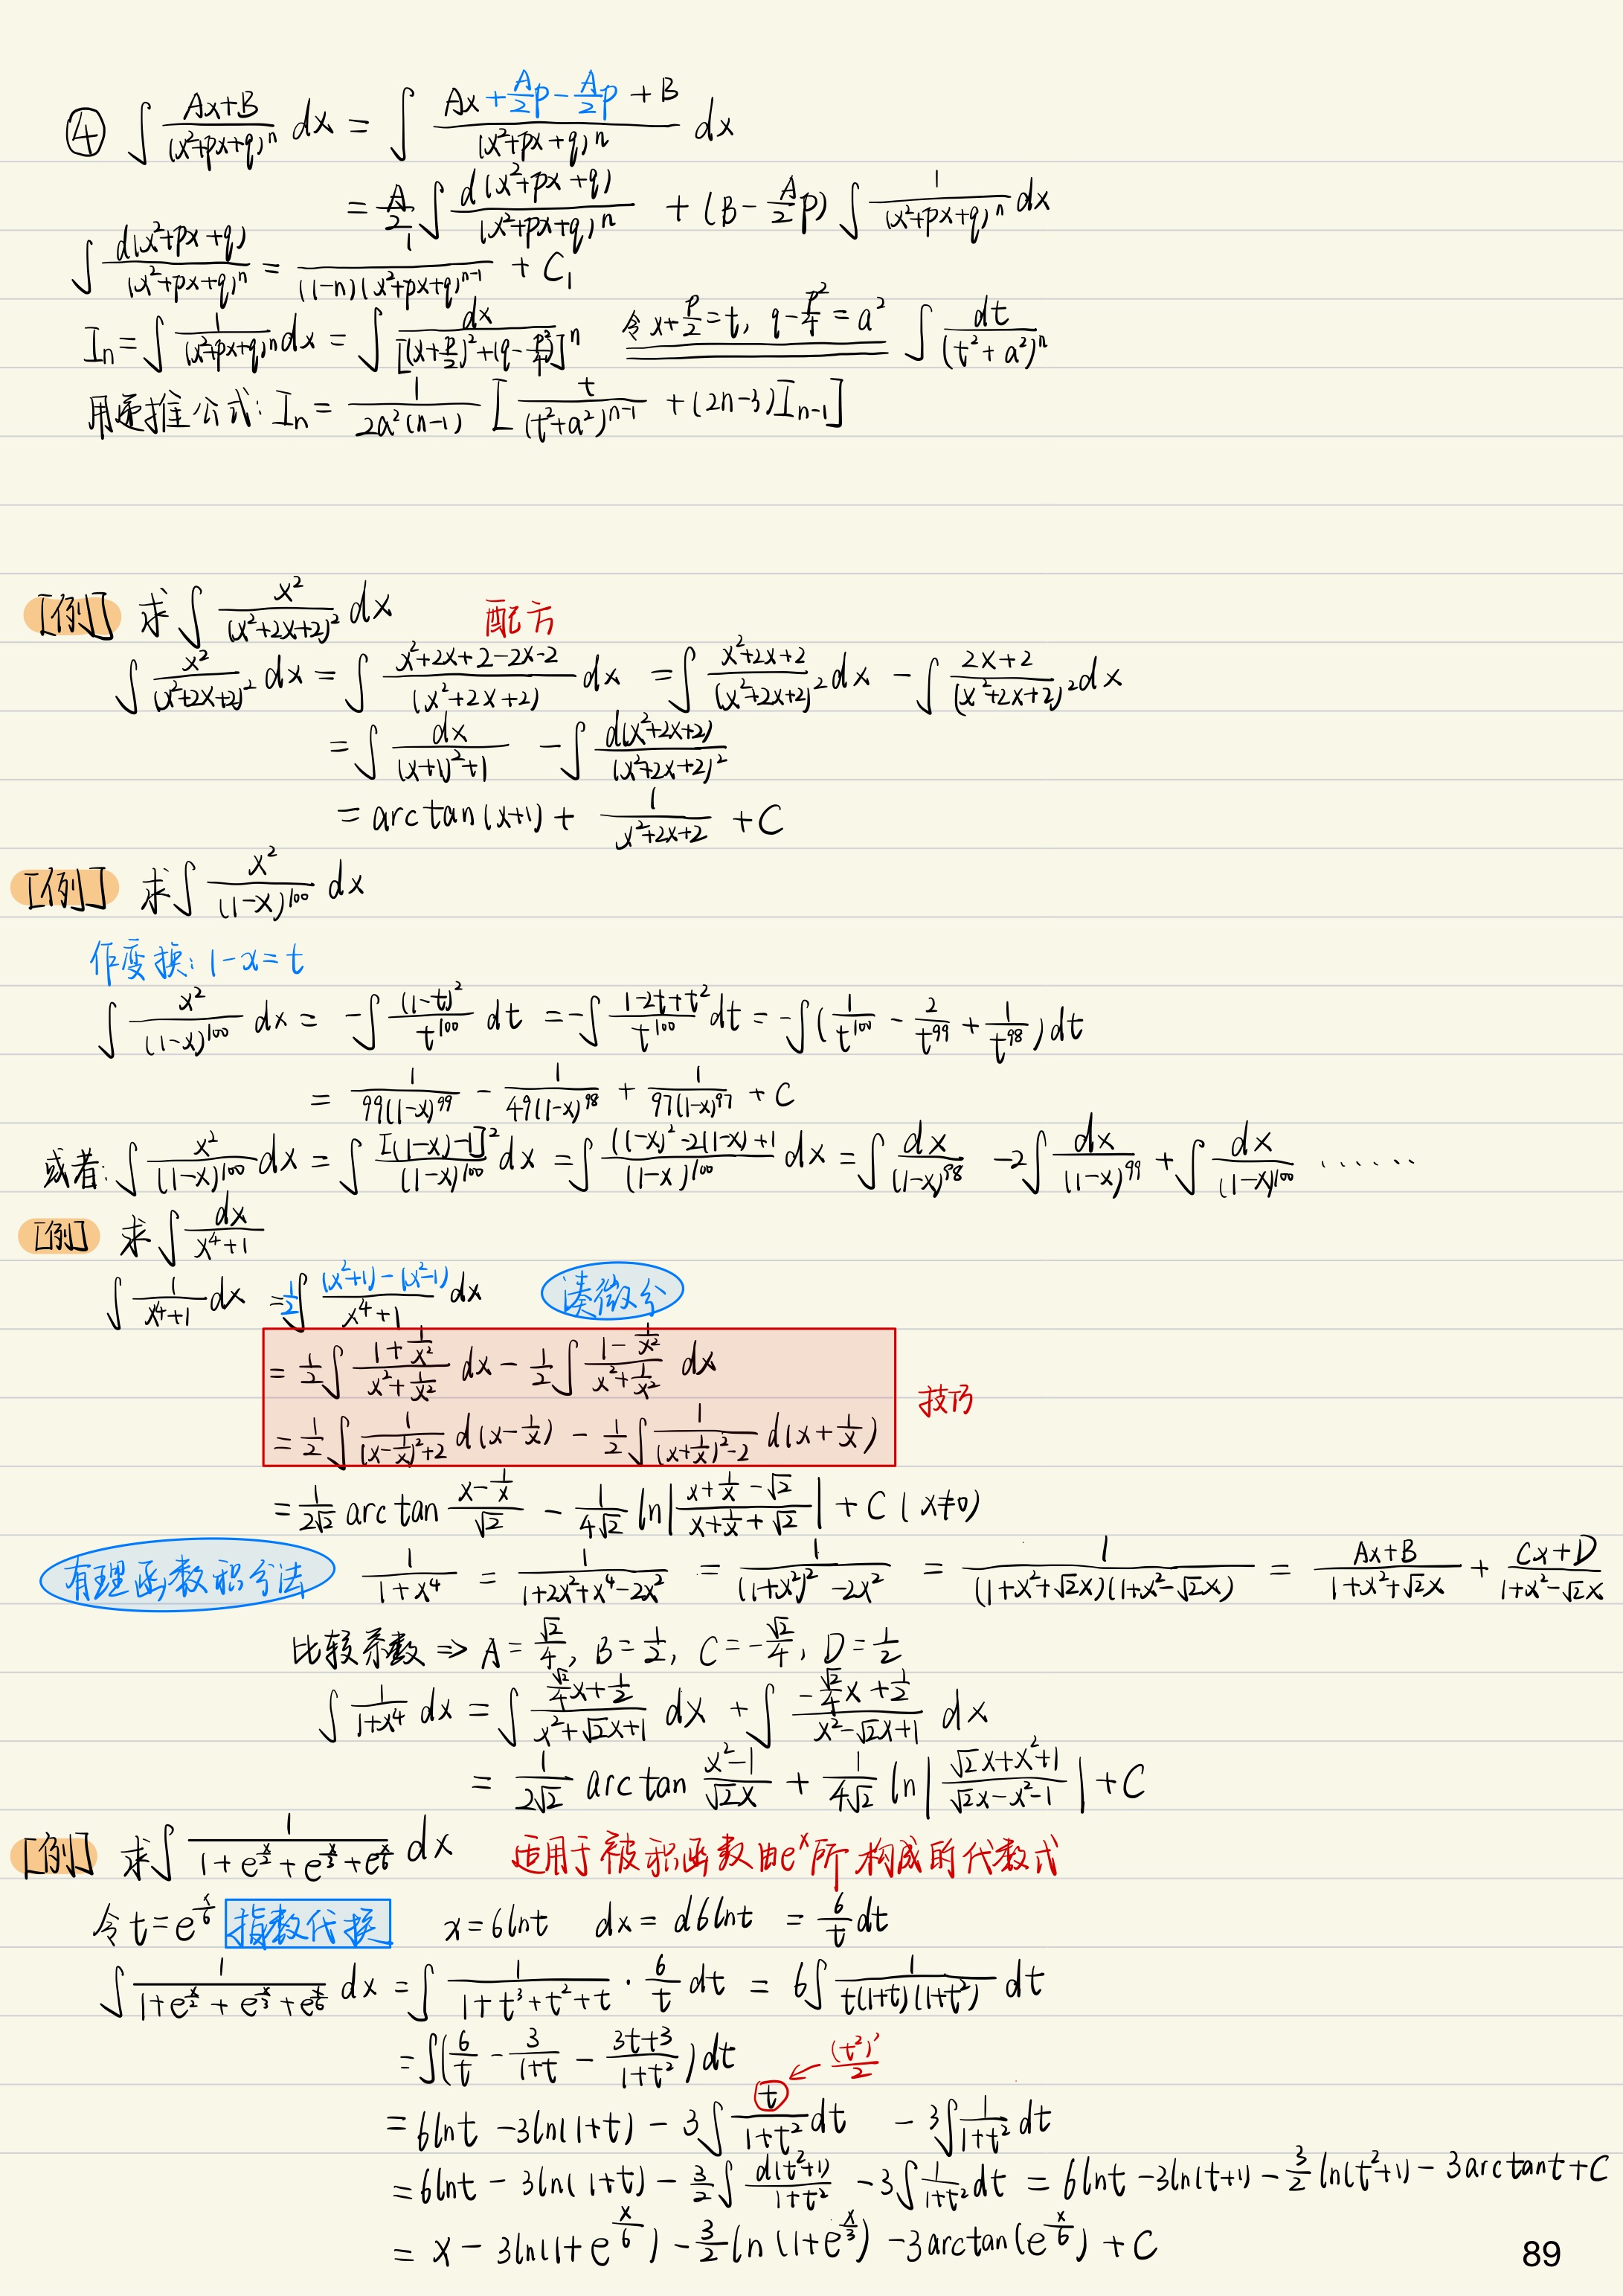 ④ ∫ (Ax+B)/(x²+px+q)ⁿ dx = ∫ (Ax + (A/2)p − (A/2)p + B)/(x²+px+q)ⁿ dx
= A/2 ∫ d(x²+px+q)/(x²+px+q)ⁿ + (B − (A/2)p) ∫ 1/(x²+px+q)ⁿ dx
∫ d(x²+px+q)/(x²+px+q)ⁿ = 1/((1−n)(x²+px+q)ⁿ⁻¹) + C₁
Iₙ = ∫ 1/(x²+px+q)ⁿ dx = ∫ dx/[(x+p/2)²+(q−p²/4)]ⁿ 令 x+p/2=t, q−p²/4=a² ∫ dt/(t²+a²)ⁿ
用递推公式: Iₙ = 1/(2a²(n−1)) [t/(t²+a²)ⁿ⁻¹ + (2n−3)Iₙ₋₁]
[例] 求∫ x²/(x²+2x+2)² dx 配方
∫ x²/(x²+2x+2)² dx = ∫ (x²+2x+2−2x−2)/(x²+2x+2) dx = ∫ (x²+2x+2)/(x²+2x+2)² dx − ∫ (2x+2)/(x²+2x+2)² dx
= ∫ dx/((x+1)²+1) − ∫ d(x²+2x+2)/(x²+2x+2)²
= arctan(x+1) + 1/(x²+2x+2) + C
[例] 求∫ x²/(1−x)¹⁰⁰ dx
作变换: 1−x=t
∫ x²/(1−x)¹⁰⁰ dx = −∫ (1−t)²/t¹⁰⁰ dt = −∫ (1−2t+t²)/t¹⁰⁰ dt = −∫ (1/t¹⁰⁰ − 2/t⁹⁹ + 1/t⁹⁸) dt
= 1/(99(1−x)⁹⁹) − 1/(49(1−x)⁹⁸) + 1/(97(1−x)⁹⁷) + C
或者: ∫ x²/(1−x)¹⁰⁰ dx = ∫ [(1−x)−1]²/(1−x)¹⁰⁰ dx = ∫ ((1−x)²−2(1−x)+1)/(1−x)¹⁰⁰ dx = ∫ dx/(1−x)⁹⁸ −2∫ dx/(1−x)⁹⁹ + ∫ dx/(1−x)¹⁰⁰ ······
[例] 求∫ dx/(x⁴+1)
∫ 1/(x⁴+1) dx = 1/2 ∫ ((x²+1)−(x²−1))/(x⁴+1) dx 凑微分
= 1/2 ∫ (1+1/x²)/(x²+1/x²) dx − 1/2 ∫ (1−1/x²)/(x²+1/x²) dx
= 1/2 ∫ 1/((x−1/x)²+2) d(x−1/x) − 1/2 ∫ 1/((x+1/x)²−2) d(x+1/x) 技巧
= 1/(2√2) arctan (x−1/x)/√2 − 1/(4√2) ln|(x+1/x−√2)/(x+1/x+√2)| + C (x≠0)
有理函数积分法 1/(1+x⁴) = 1/(1+2x²+x⁴−2x²) = 1/((1+x²)²−2x²) = 1/((1+x²+√2x)(1+x²−√2x)) = (Ax+B)/(1+x²+√2x) + (Cx+D)/(1+x²−√2x)
比较系数 ⇒ A=√2/4, B=1/2, C=−√2/4, D=1/2
∫ 1/(1+x⁴) dx = ∫ (√2/4 x+1/2)/(x²+√2x+1) dx + ∫ (−√2/4 x+1/2)/(x²−√2x+1) dx
= 1/(2√2) arctan (x²−1)/(√2x) + 1/(4√2) ln|(√2x+x²+1)/(√2x−x²−1)| + C
[例] 求∫ 1/(1+e^(x/2)+e^(x/3)+e^(x/6)) dx 适用于被积函数由eˣ所构成的代数式
令 t=e^(x/6) 指数代换 x=6lnt dx= d6lnt = 6/t dt
∫ 1/(1+e^(x/2)+e^(x/3)+e^(x/6)) dx = ∫ 1/(1+t³+t²+t) · 6/t dt = 6∫ 1/(t(1+t)(1+t²)) dt
= ∫(6/t − 3/(1+t) − (3t+3)/(1+t²)) dt (t²)′/2
= 6lnt −3ln(1+t) − 3∫ t/(1+t²) dt − 3∫ 1/(1+t²) dt
= 6lnt − 3ln(1+t) − 3/2 ∫ d(t²+1)/(1+t²) − 3∫ 1/(1+t²) dt = 6lnt −3ln(t+1) − 3/2 ln(t²+1) − 3arctant + C
= x − 3ln(1+e^(x/6)) − 3/2 ln(1+e^(x/3)) − 3arctan(e^(x/6)) + C
89